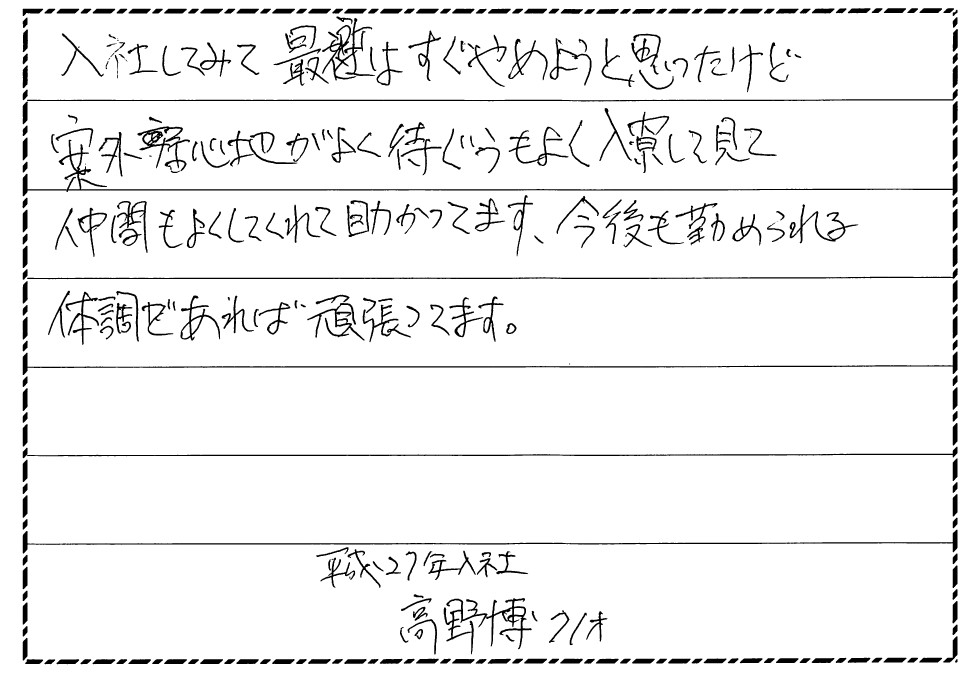 入社してみて最初はすぐやめようと思ったけど
案外居心地がよく待ぐうもよく入寮して見て
仲間もよくしてくれて助かってます、今後も勤められる
体調であれば頑張ってます。
平成27年入社
高野博 71才